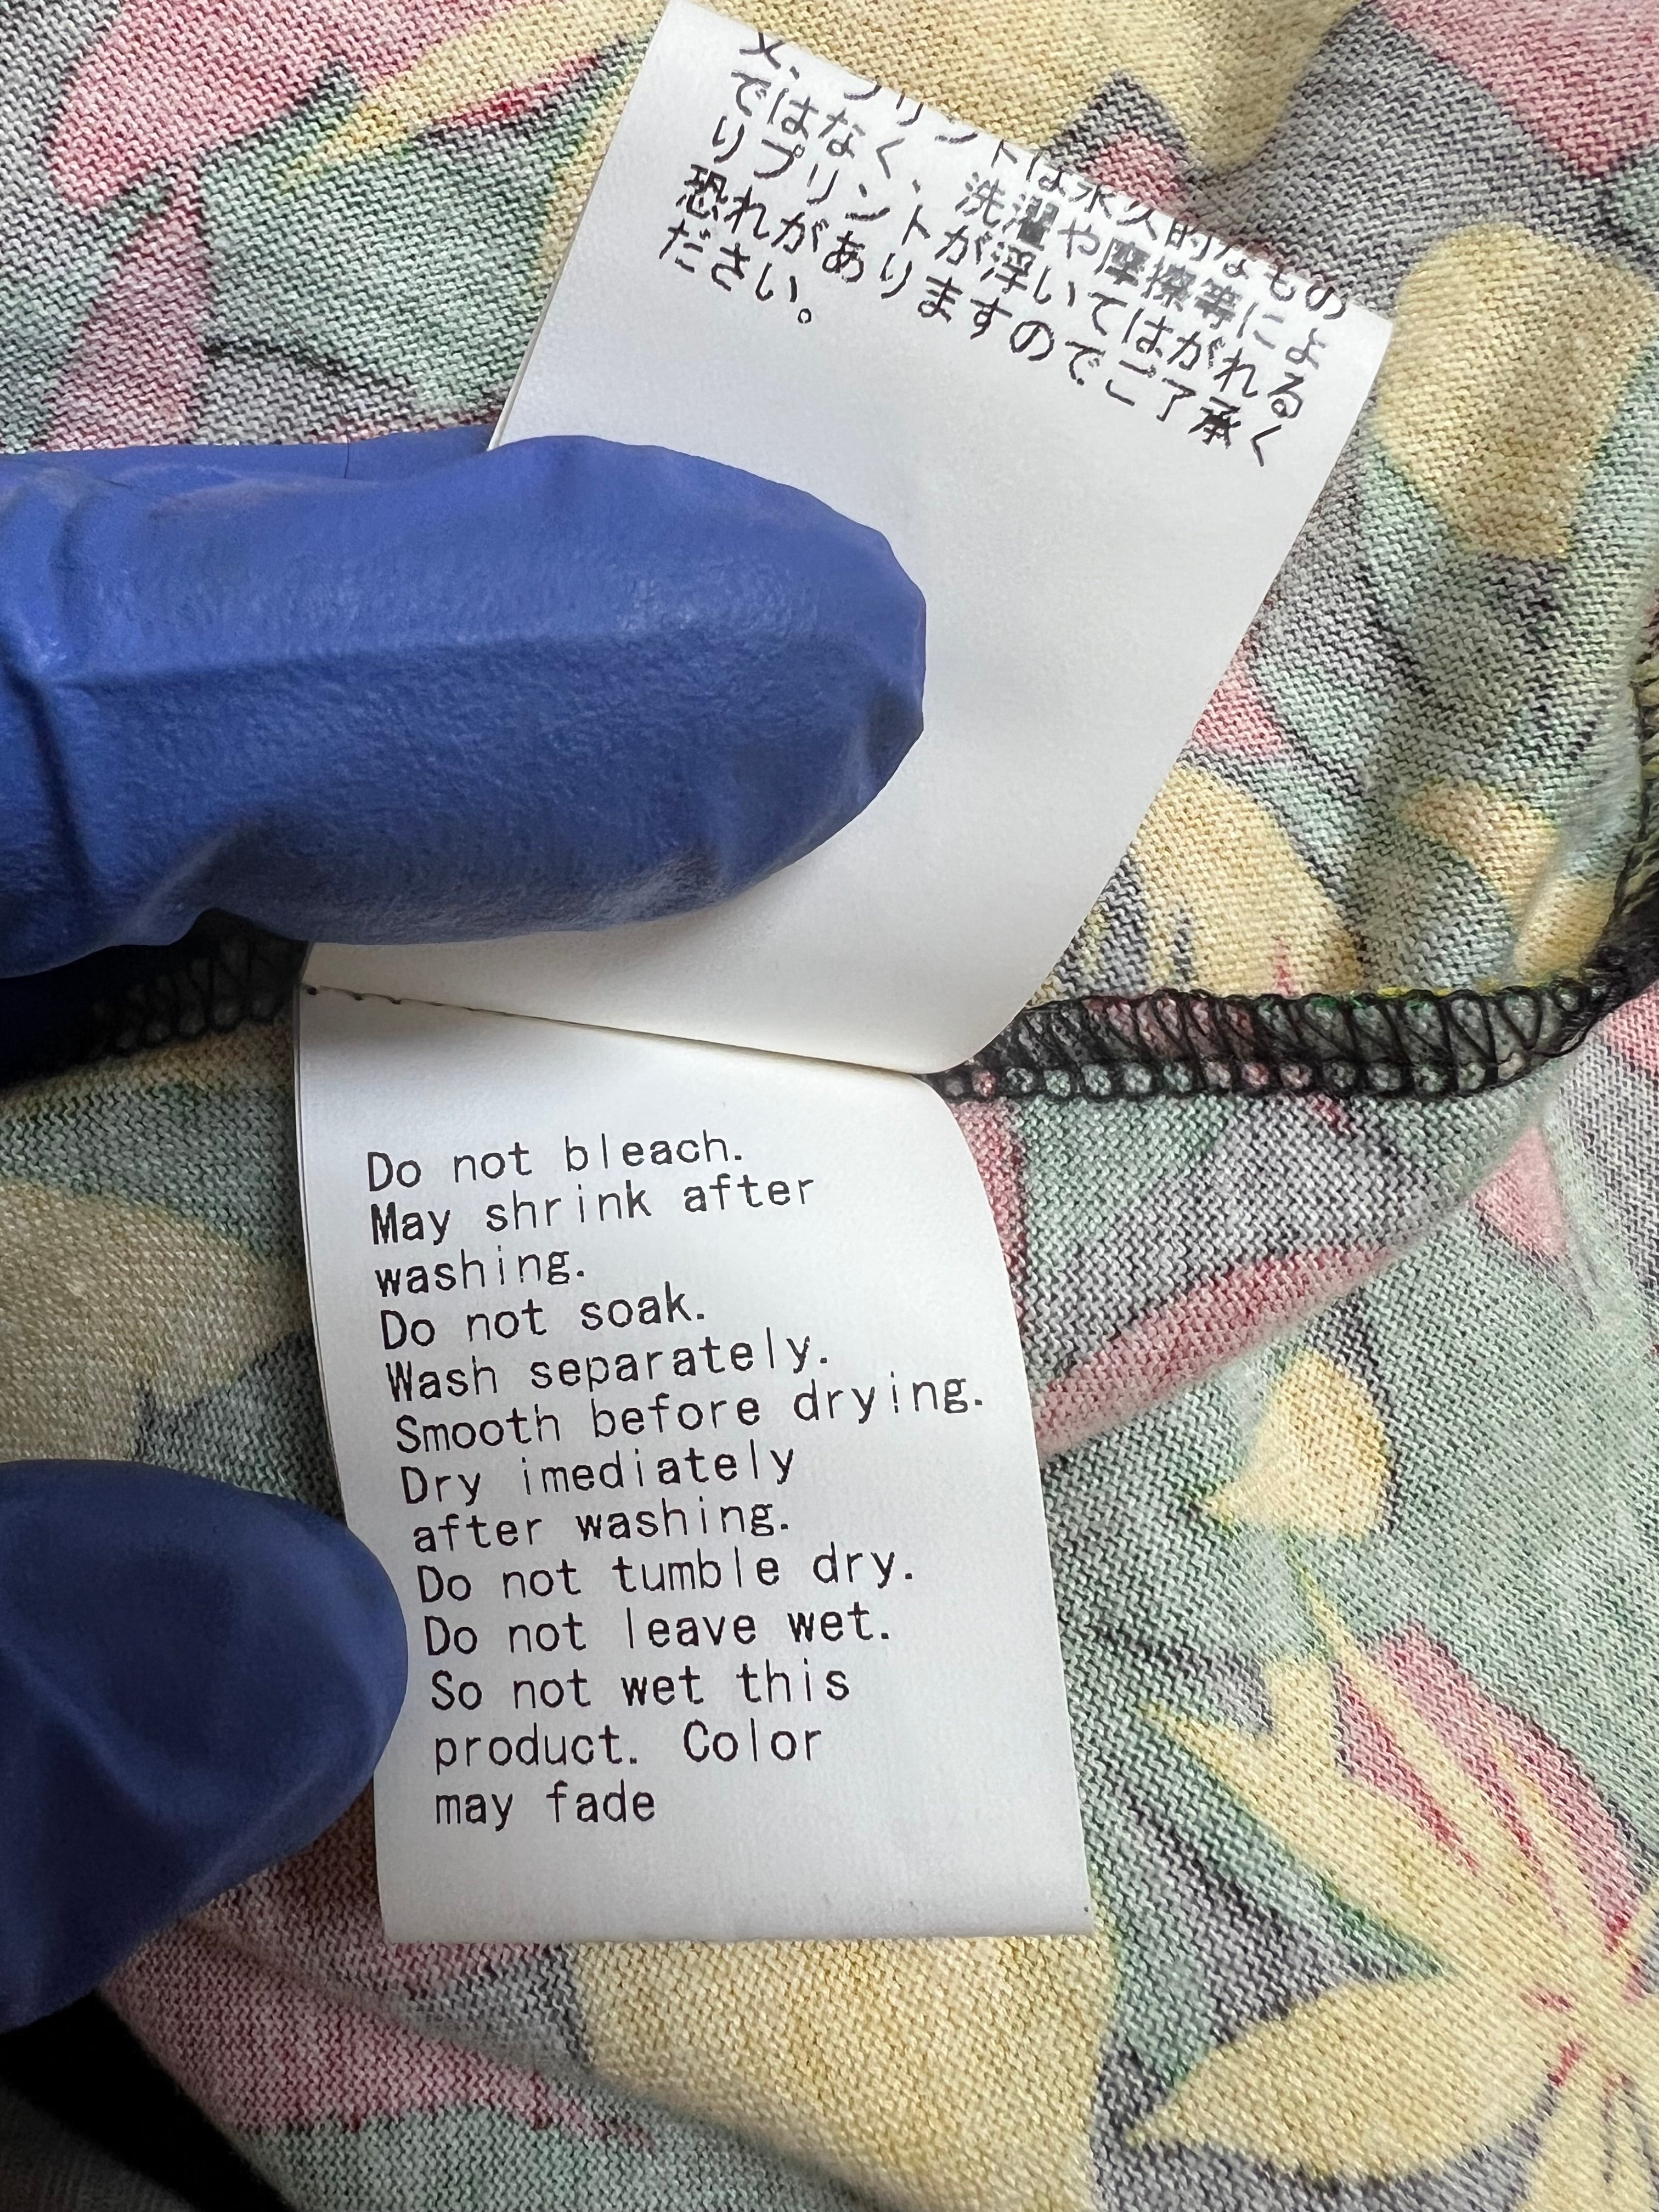 又、プリントは永久的なもの
ではなく、洗濯や摩擦等によ
りプリントが浮いてはがれる
恐れがありますのでご了承く
ださい。
Do not bleach.
May shrink after
washing.
Do not soak.
Wash separately.
Smooth before drying.
Dry imediately
after washing.
Do not tumble dry.
Do not leave wet.
So not wet this
product. Color
may fade